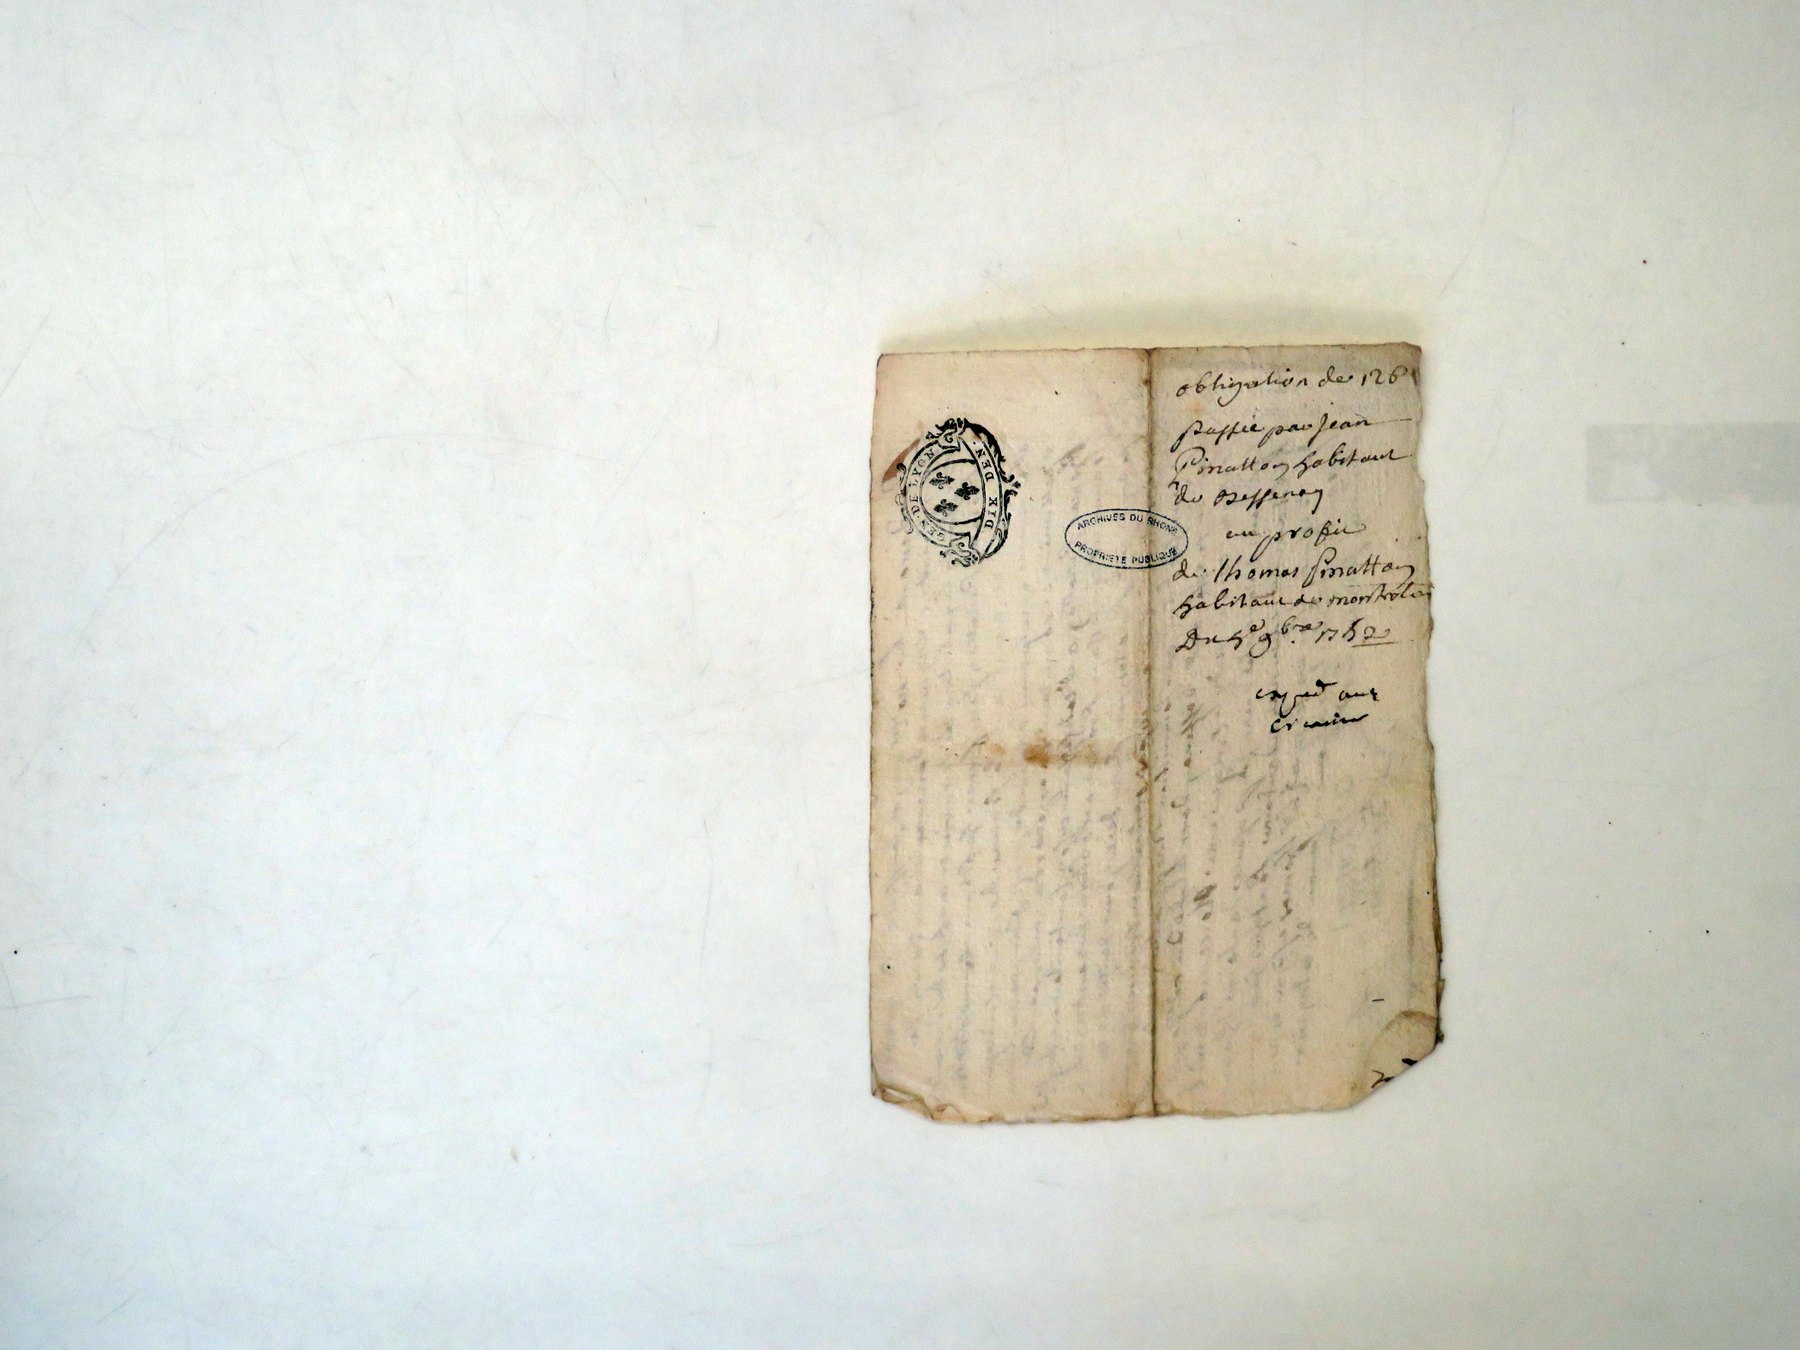 GEN·DE LYON
DIX DEN.
ARCHIVES DU RHÔNE
PROPRIÉTÉ PUBLIQUE
obligation de 126
passée par Jean
Pinatton habitant
de Bessenay
au profit
de Thomas Pinatton
habitant de montrotier
Du 5e 9bre 1752